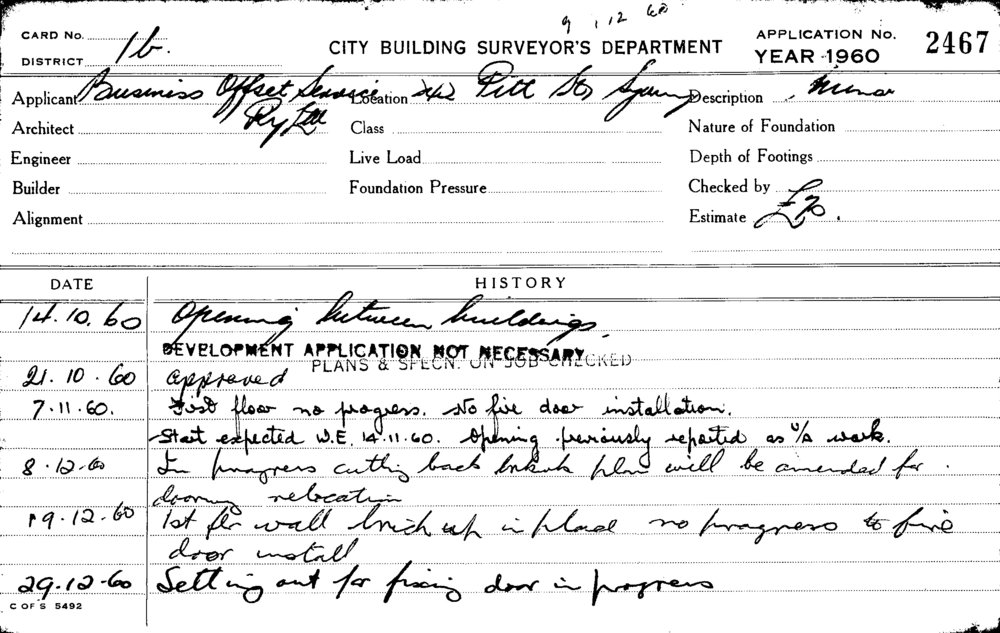 9.12.60
CARD No. 1b.
DISTRICT
CITY BUILDING SURVEYOR'S DEPARTMENT
APPLICATION No.
YEAR 1960
2467
Applicant Business Offset Service Pty Ltd
Location 242 Pitt St Sydney
Description Minor
Architect
Class
Nature of Foundation
Engineer
Live Load
Depth of Footings
Builder
Foundation Pressure
Checked by
Alignment
Estimate £70.
DATE
HISTORY
14.10.60 Opening between buildings.
DEVELOPMENT APPLICATION NOT NECESSARY
PLANS & SPECN. ON JOB CHECKED
21.10.60 approved
7.11.60. First floor no progress. No fire door installation.
Start expected W.E. 14.11.60. Opening previously reported as u/a work.
8.12.60 In progress cutting back plan will be amended for
relocation
19.12.60 1st flr wall brick up in place no progress to fire
door install
29.12.60 Setting out for fixing door in progress
C OF S 5492